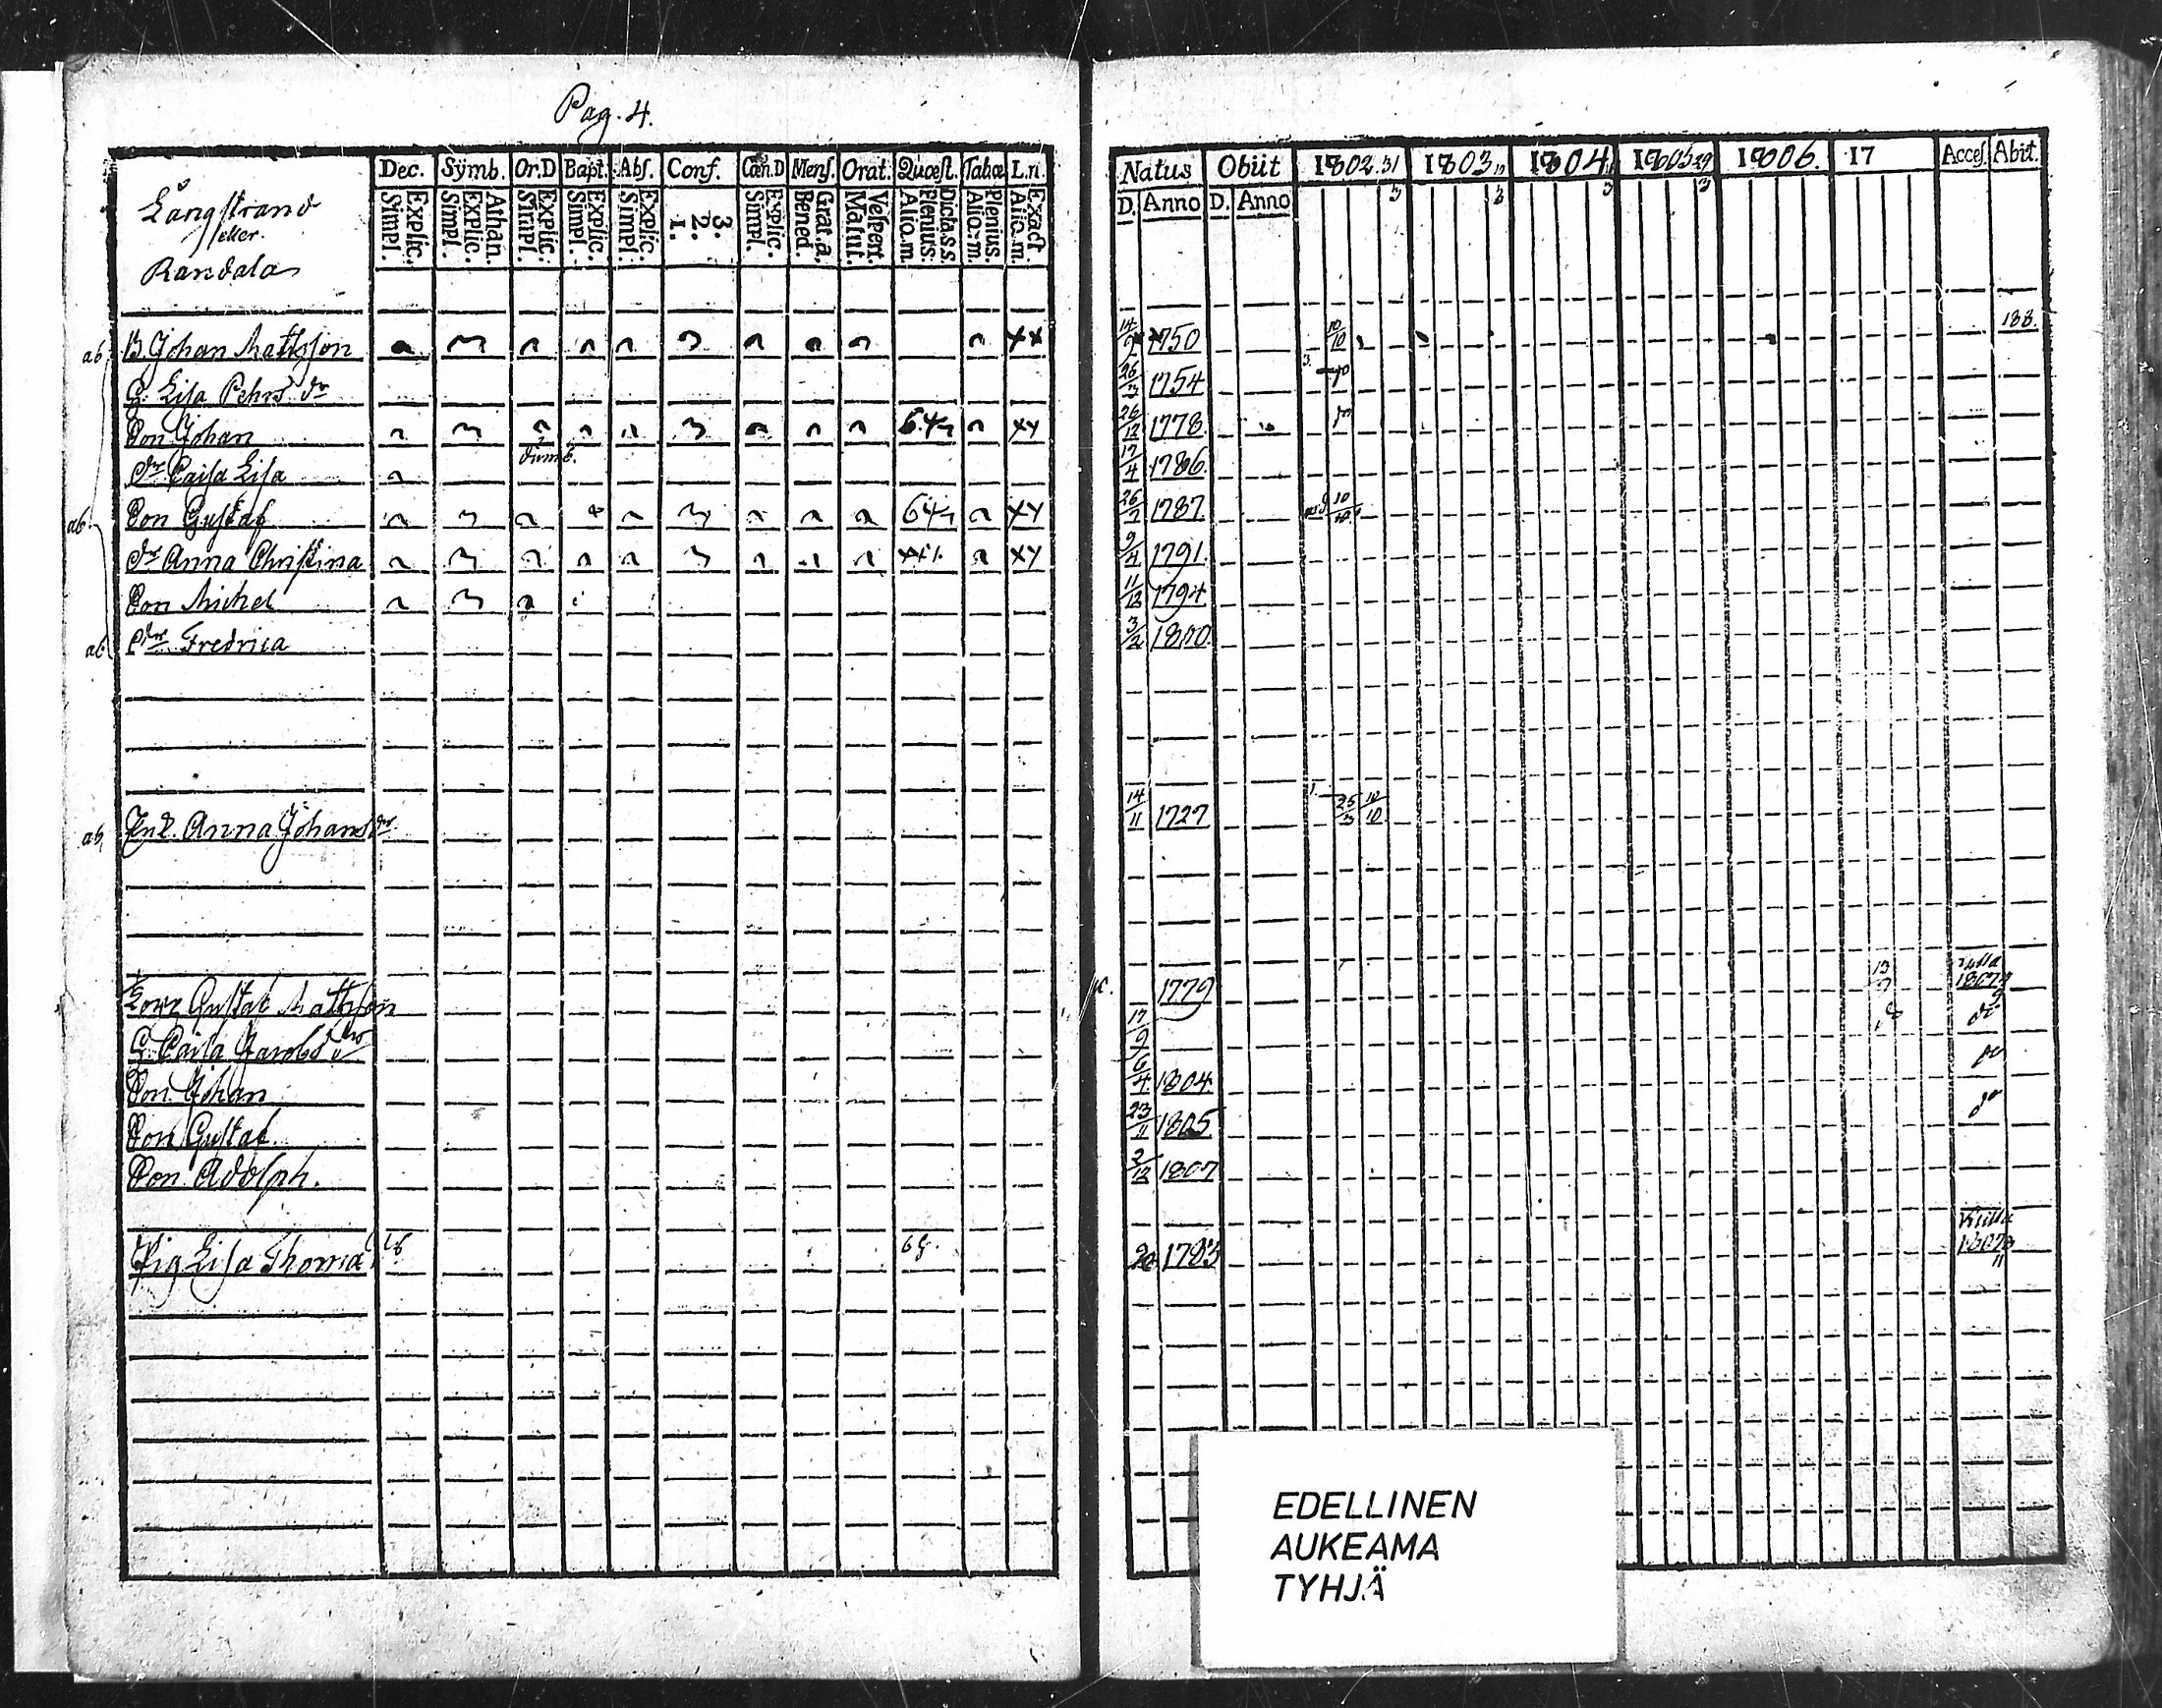 Pag. 4.
Långstrand
eller
Randala
Dec. Symb. Or.D Bapt. Abs. Conf. Cœn.D Mens. Orat. Quæst. Tabœ L.n.
Explic. Simpl. Athan. Explic. Simpl. Explic. Simpl. Explic. Simpl. Explic. Simpl. 3. 2. 1. Explic. Simpl. Grat.a. Bened. Vespert. Matut. Dicta.s.s Plenius. Alio.m. Plenius. Alio.m. Exact. Alio.m.
Natus Obiit 1802 1803 1804 1805 1806 17 Acces. Abiit.
D. Anno D. Anno
ab B. Johan Mattsson xx 14/9 1750 10/10 188
G. Lisa Pehrs dr 26/3 1754
Son Johan 64 xx 26/12 1778
dumb.
dr Caisa Lisa 17/4 1786
ab Son Gustaf 64 xx 26/7 1787
dr Anna Christina xx 9/4 1791
Son Michel 11/12 1794
ab dr Fredrica 3/2 1800
ab Enk. Anna Johans dr 14/11 1727 25/3 10/10
Gustaf Mattsson 1779 13 1807
G. Caisa Jacobs dr 17/9 do
Son Johan 6/4 1804 do
Son Gustaf 23/11 1805 do
Son Adolph. 2/12 1807
Pig Lisa Thomas 1793
EDELLINEN
AUKEAMA
TYHJÄ